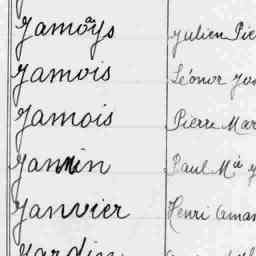 Jamoÿs Julien Pie
Jamois Léonor Jos
Jamois Pierre Mar
Jannin Paul Mie J
Janvier Henri Aman
Jardin